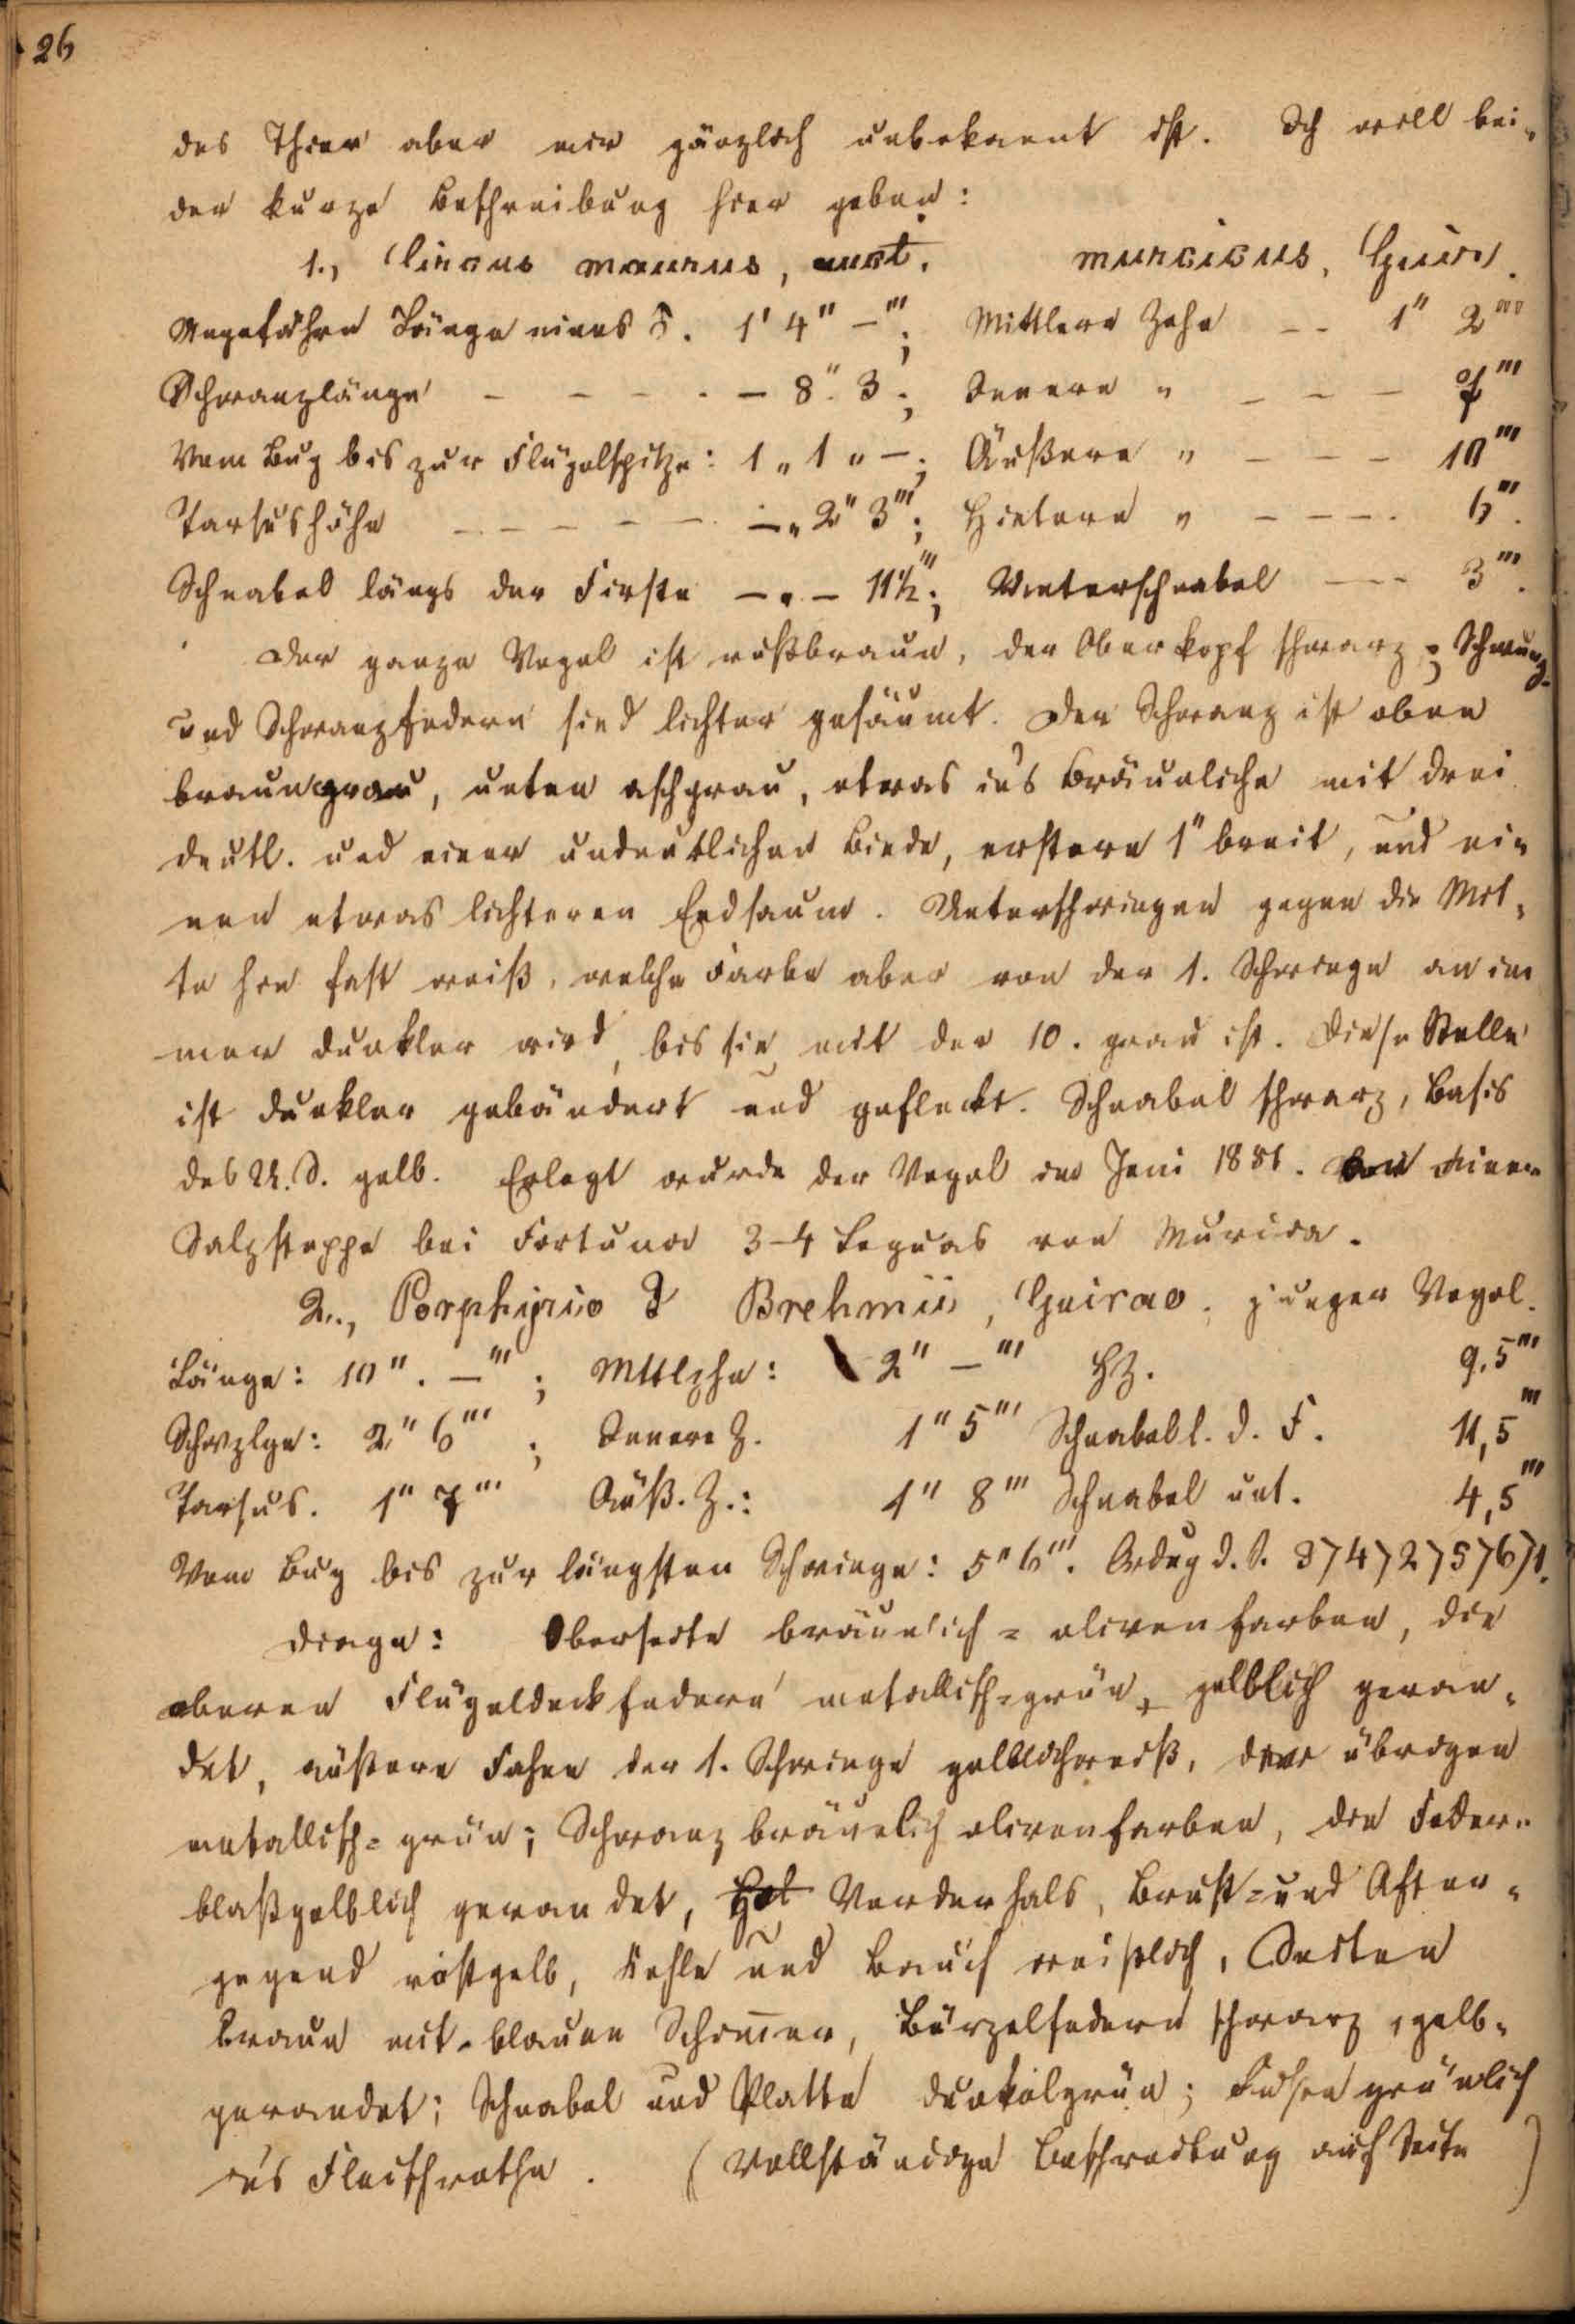 26
das Thier aber mir gänzlich unbekannt ist. Ich will bei-
der kurze Beschreibung hier geben:
1., Circus maurus, murcicus, Guirao.
Ungefähre Länge eines ♂. 1' 4" –'''; Mittlere Zehe – – 1" 2'''
Schwanzlänge – – – – – 8" 3; Innere " – – – 7'''
Vom Bug bis zur Flügelspitze: 1 " 1 " –; Äußere " – – – 10'''
Tarsushöhe – – – – – –" 2" 3'''; Hintere " – – – – 6'''.
Schnabel längs der Firste –"– 11½'''; Unterschnabel – – – 3'''.
Der ganze Vogel ist rußbraun, der Oberkopf schwarz; Schwung-
und Schwanzfedern sind lichter gesäumt. Der Schwanz ist oben
braungrau, unten aschgrau, etwas in's Bräunliche mit drei
deutl. und einer undeutlichen Binde, erstere 1" breit, und ei-
nen etwas lichteren Endsaum. Unterschwingen gegen die Mit-
te hin fast weiß, welche Farbe aber von der 1. Schwinge an im
mer dunkler wird, bis sie mit der 10. grau ist. Diese Stelle
ist dunkler gebändert und gefleckt. Schnabel schwarz, Basis
des U. S. gelb. Erlegt wurde der Vogel im Juni 1851. einer
Salzsteppe bei Fortuna 3–4 Leguas von Murcia.
2., Porphyrio Brehmii, Guirao, junger Vogel.
Länge: 10". –'''; Mttlzhe: 2" –''' HZ. 9,5'''
Schwzlge: 2" 6'''; Innere Z. 1" 5''' Schnabel l. d. F. 11,5'''
Tarsus. 1" 7''' Äuß. Z.: 1" 8''' Schnabel unt. 4,5'''
Vom Bug bis zur längsten Schwinge: 5" 6'''. Ordng d. S. 3>4>2>5>6>1.
Diagn: Oberseite bräunlich-olivenfarben, die
oberen Flügeldeckfedern metallisch-grün, gelblich geran-
det, äußere Fahne der 1. Schwinge gelblichweiß, die übrigen
metallisch-grün; Schwanz bräunlich olivenfarben, die Federn
blaßgelblich gerandet, Hal Vorderhals, Brust- und After-
gegend rostgelb, Kehle und Bauch weißlich, Seiten
braun mit blauen Schimmer, Bürzelfedern schwarz, gelb-
gerandet; Schnabel und Platte dunkelgrün; grünlich
in's Fleischrothe. (Vollständige Beschreibung auf Seite )